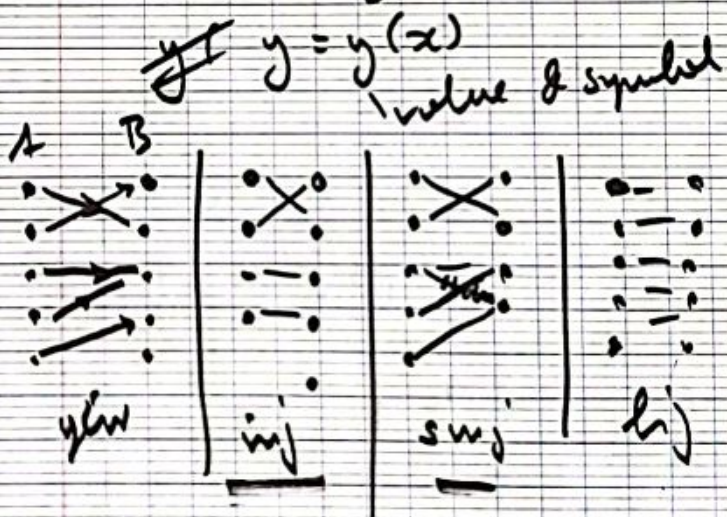 y = y(x)
value & symbol
A B
inj surj bij